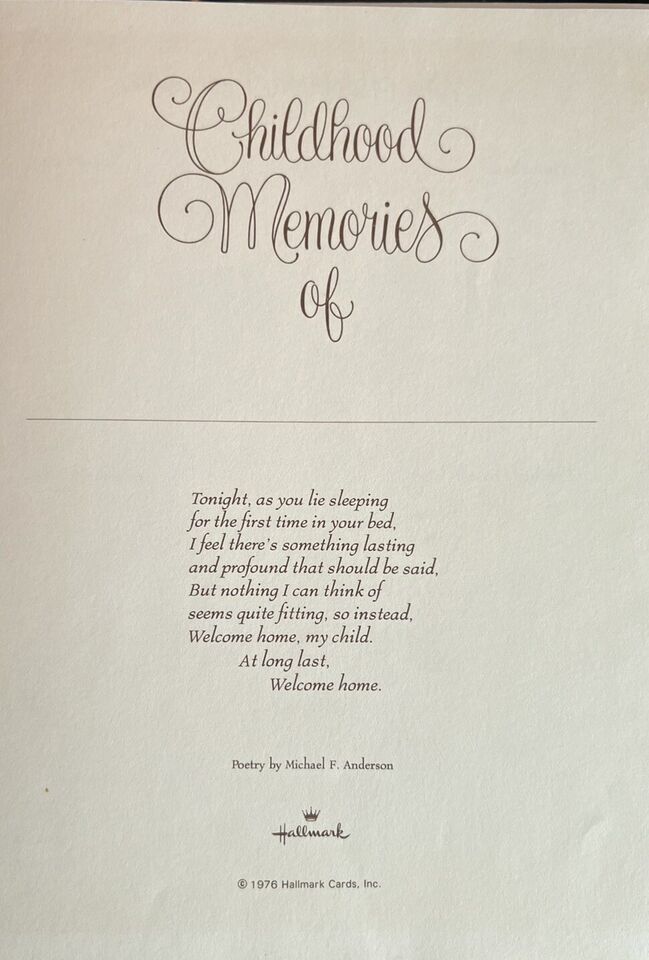 Childhood
Memories
of
Tonight, as you lie sleeping
for the first time in your bed,
I feel there's something lasting
and profound that should be said,
But nothing I can think of
seems quite fitting, so instead,
Welcome home, my child.
At long last,
Welcome home.
Poetry by Michael F. Anderson
Hallmark
© 1976 Hallmark Cards, Inc.